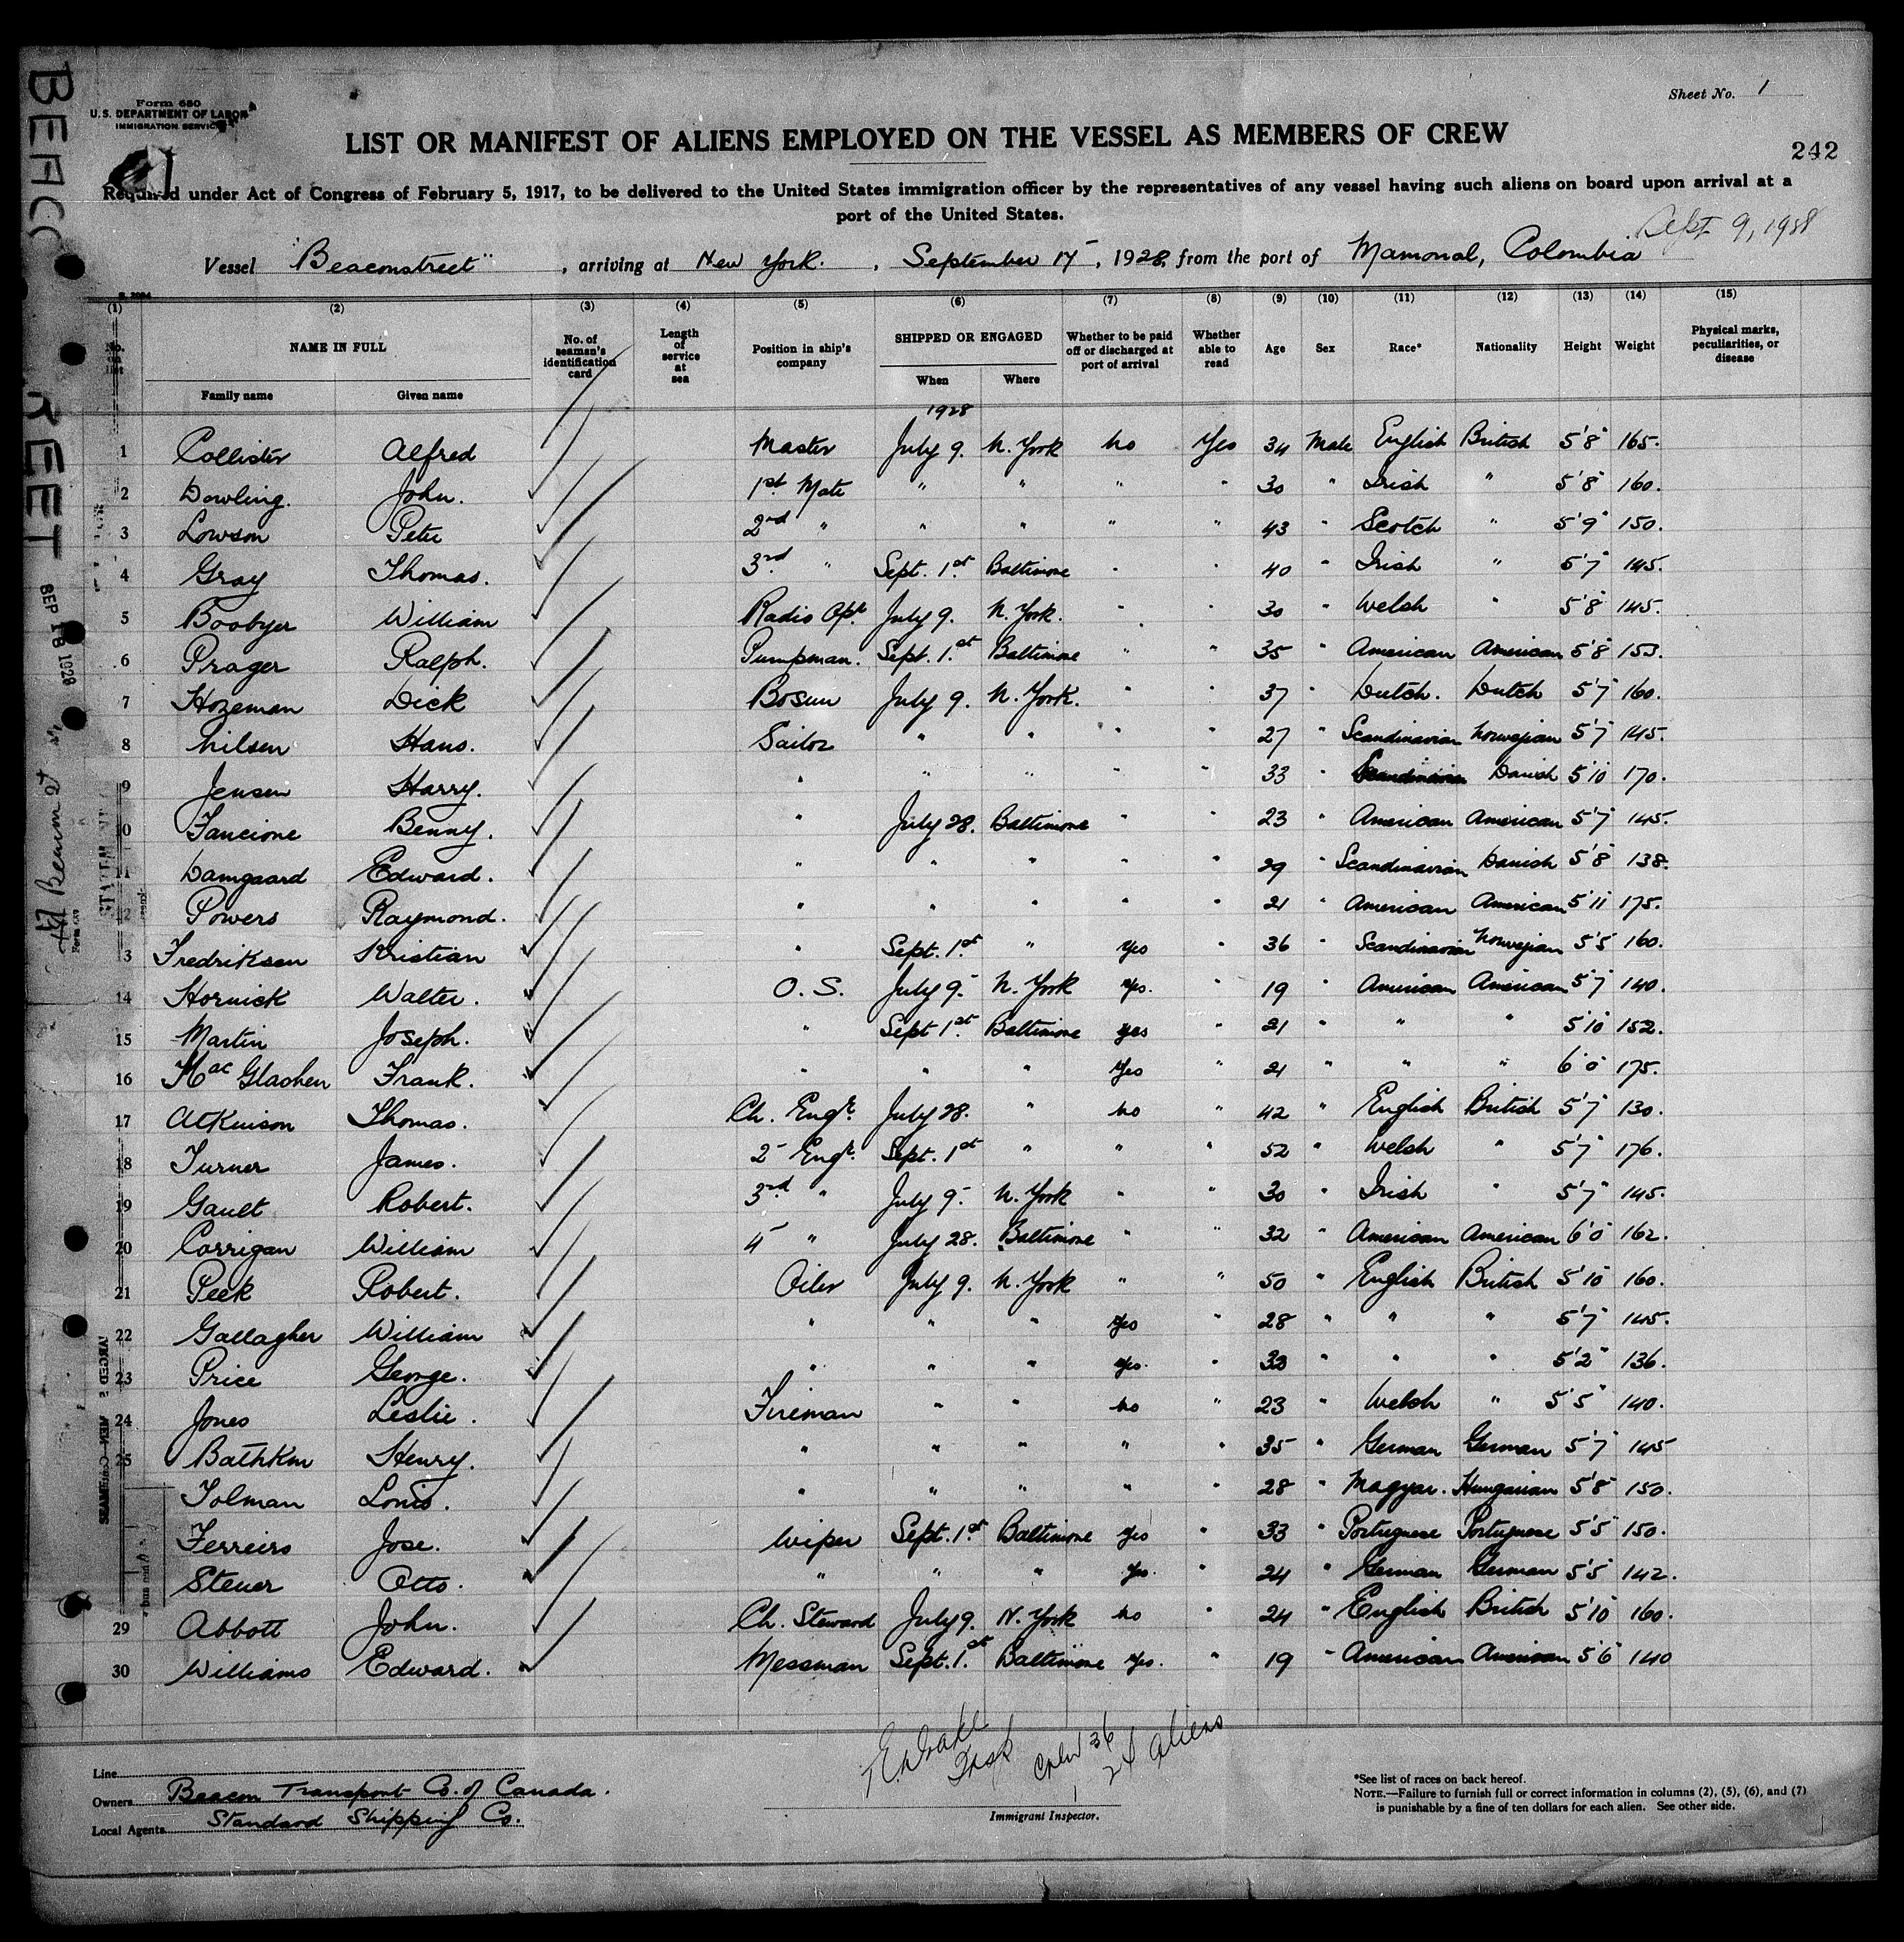 Form 680
U. S. DEPARTMENT OF LABOR
IMMIGRATION SERVICE
Sheet No. 1
LIST OR MANIFEST OF ALIENS EMPLOYED ON THE VESSEL AS MEMBERS OF CREW
242
Required under Act of Congress of February 5, 1917, to be delivered to the United States immigration officer by the representatives of any vessel having such aliens on board upon arrival at a
port of the United States.
Sept 9, 1928
Vessel "Beaconstreet", arriving at New York., September 17, 1928, from the port of Mamonal, Colombia
(1) (2) (3) (4) (5) (6) (7) (8) (9) (10) (11) (12) (13) (14) (15)
No. on list NAME IN FULL No. of seaman's identification card Length of service at sea Position in ship's company SHIPPED OR ENGAGED Whether to be paid off or discharged at port of arrival Whether able to read Age Sex Race* Nationality Height Weight Physical marks, peculiarities, or disease
Family name Given name When Where
1928
1 Collister Alfred Master July 9. N. York No Yes 34 Male English British 5'8" 165.
2 Dowling. John. 1st Mate " " " " 30 " Irish " 5'8" 160.
3 Lowson Peter 2nd " " " " " 43 " Scotch " 5'9" 150.
4 Gray Thomas. 3rd " Sept. 1st Baltimore " " 40 " Irish " 5'7" 145.
5 Boobyer William Radio Opr. July 9. N. York. " " 30 " Welsh " 5'8" 145.
6 Prager Ralph. Pumpman. Sept. 1st Baltimore " " 35 " American American 5'8" 153.
7 Hozeman Dick Bosun July 9. N. York. " " 37 " Dutch. Dutch 5'7" 160.
8 Nilsen Hans. Sailor " " " " 27 " Scandinavian Norwegian 5'7" 145.
9 Jensen Harry. " " " " " 33 " Scandinavian Danish 5'10" 170.
10 Fancione Benny. " July 28. Baltimore " " 23 " American American 5'7" 145.
11 Damgaard Edward. " " " " " 29 " Scandinavian Danish 5'8" 138.
12 Powers Raymond. " " " " " 21 " American American 5'11" 175.
13 Fredriksen Kristian " Sept. 1st " Yes " 36 " Scandinavian Norwegian 5'5" 160.
14 Hornick Walter. O. S. July 9. N. York Yes. " 19 " American American 5'7" 140.
15 Martin Joseph. " Sept 1st Baltimore yes " 21 " " " 5'10" 152.
16 MacGlashen Frank. " " " Yes " 21 " " " 6'0" 175.
17 Atkinson Thomas. Ch. Engr. July 28. " No " 42 " English British 5'7" 130.
18 Turner James. 2 Engr. Sept. 1st " " " 52 " Welsh " 5'7" 176.
19 Gault Robert. 3rd " July 9 N. York " " 30 " Irish " 5'7" 145.
20 Corrigan William 4 " July 28. Baltimore " " 32 " American American 6'0" 162.
21 Peek Robert. Oiler July 9. N. York " " 50 " English British 5'10" 160.
22 Gallagher William " " " Yes " 28 " " " 5'7" 145.
23 Price George. " " " Yes. " 33 " " " 5'2" 136.
24 Jones Leslie. Fireman " " No " 23 " Welsh " 5'5" 140.
25 Bathkin Henry. " " " " " 35 " German German 5'7" 145
Tolman Louis. " " " " " 28 " Magyar. Hungarian 5'8" 150.
Ferreiro Jose. Wiper Sept. 1st Baltimore Yes " 33 " Portuguese Portuguese 5'5" 150.
Steuer Otto. " " " Yes. " 24 " German German 5'5" 142.
29 Abbott John. Ch. Steward July 9. N. York No " 24 " English British 5'10" 160.
30 Williams Edward. Messman Sept. 1st Baltimore Yes. " 19 " American American 5'6" 140
Crew 36
24 Aliens
Line
Owners Beacon Transport Co. of Canada.
Local Agents Standard Shipping Co.
Immigrant Inspector.
*See list of races on back hereof.
NOTE.—Failure to furnish full or correct information in columns (2), (5), (6), and (7)
is punishable by a fine of ten dollars for each alien. See other side.
SEP 18 1928